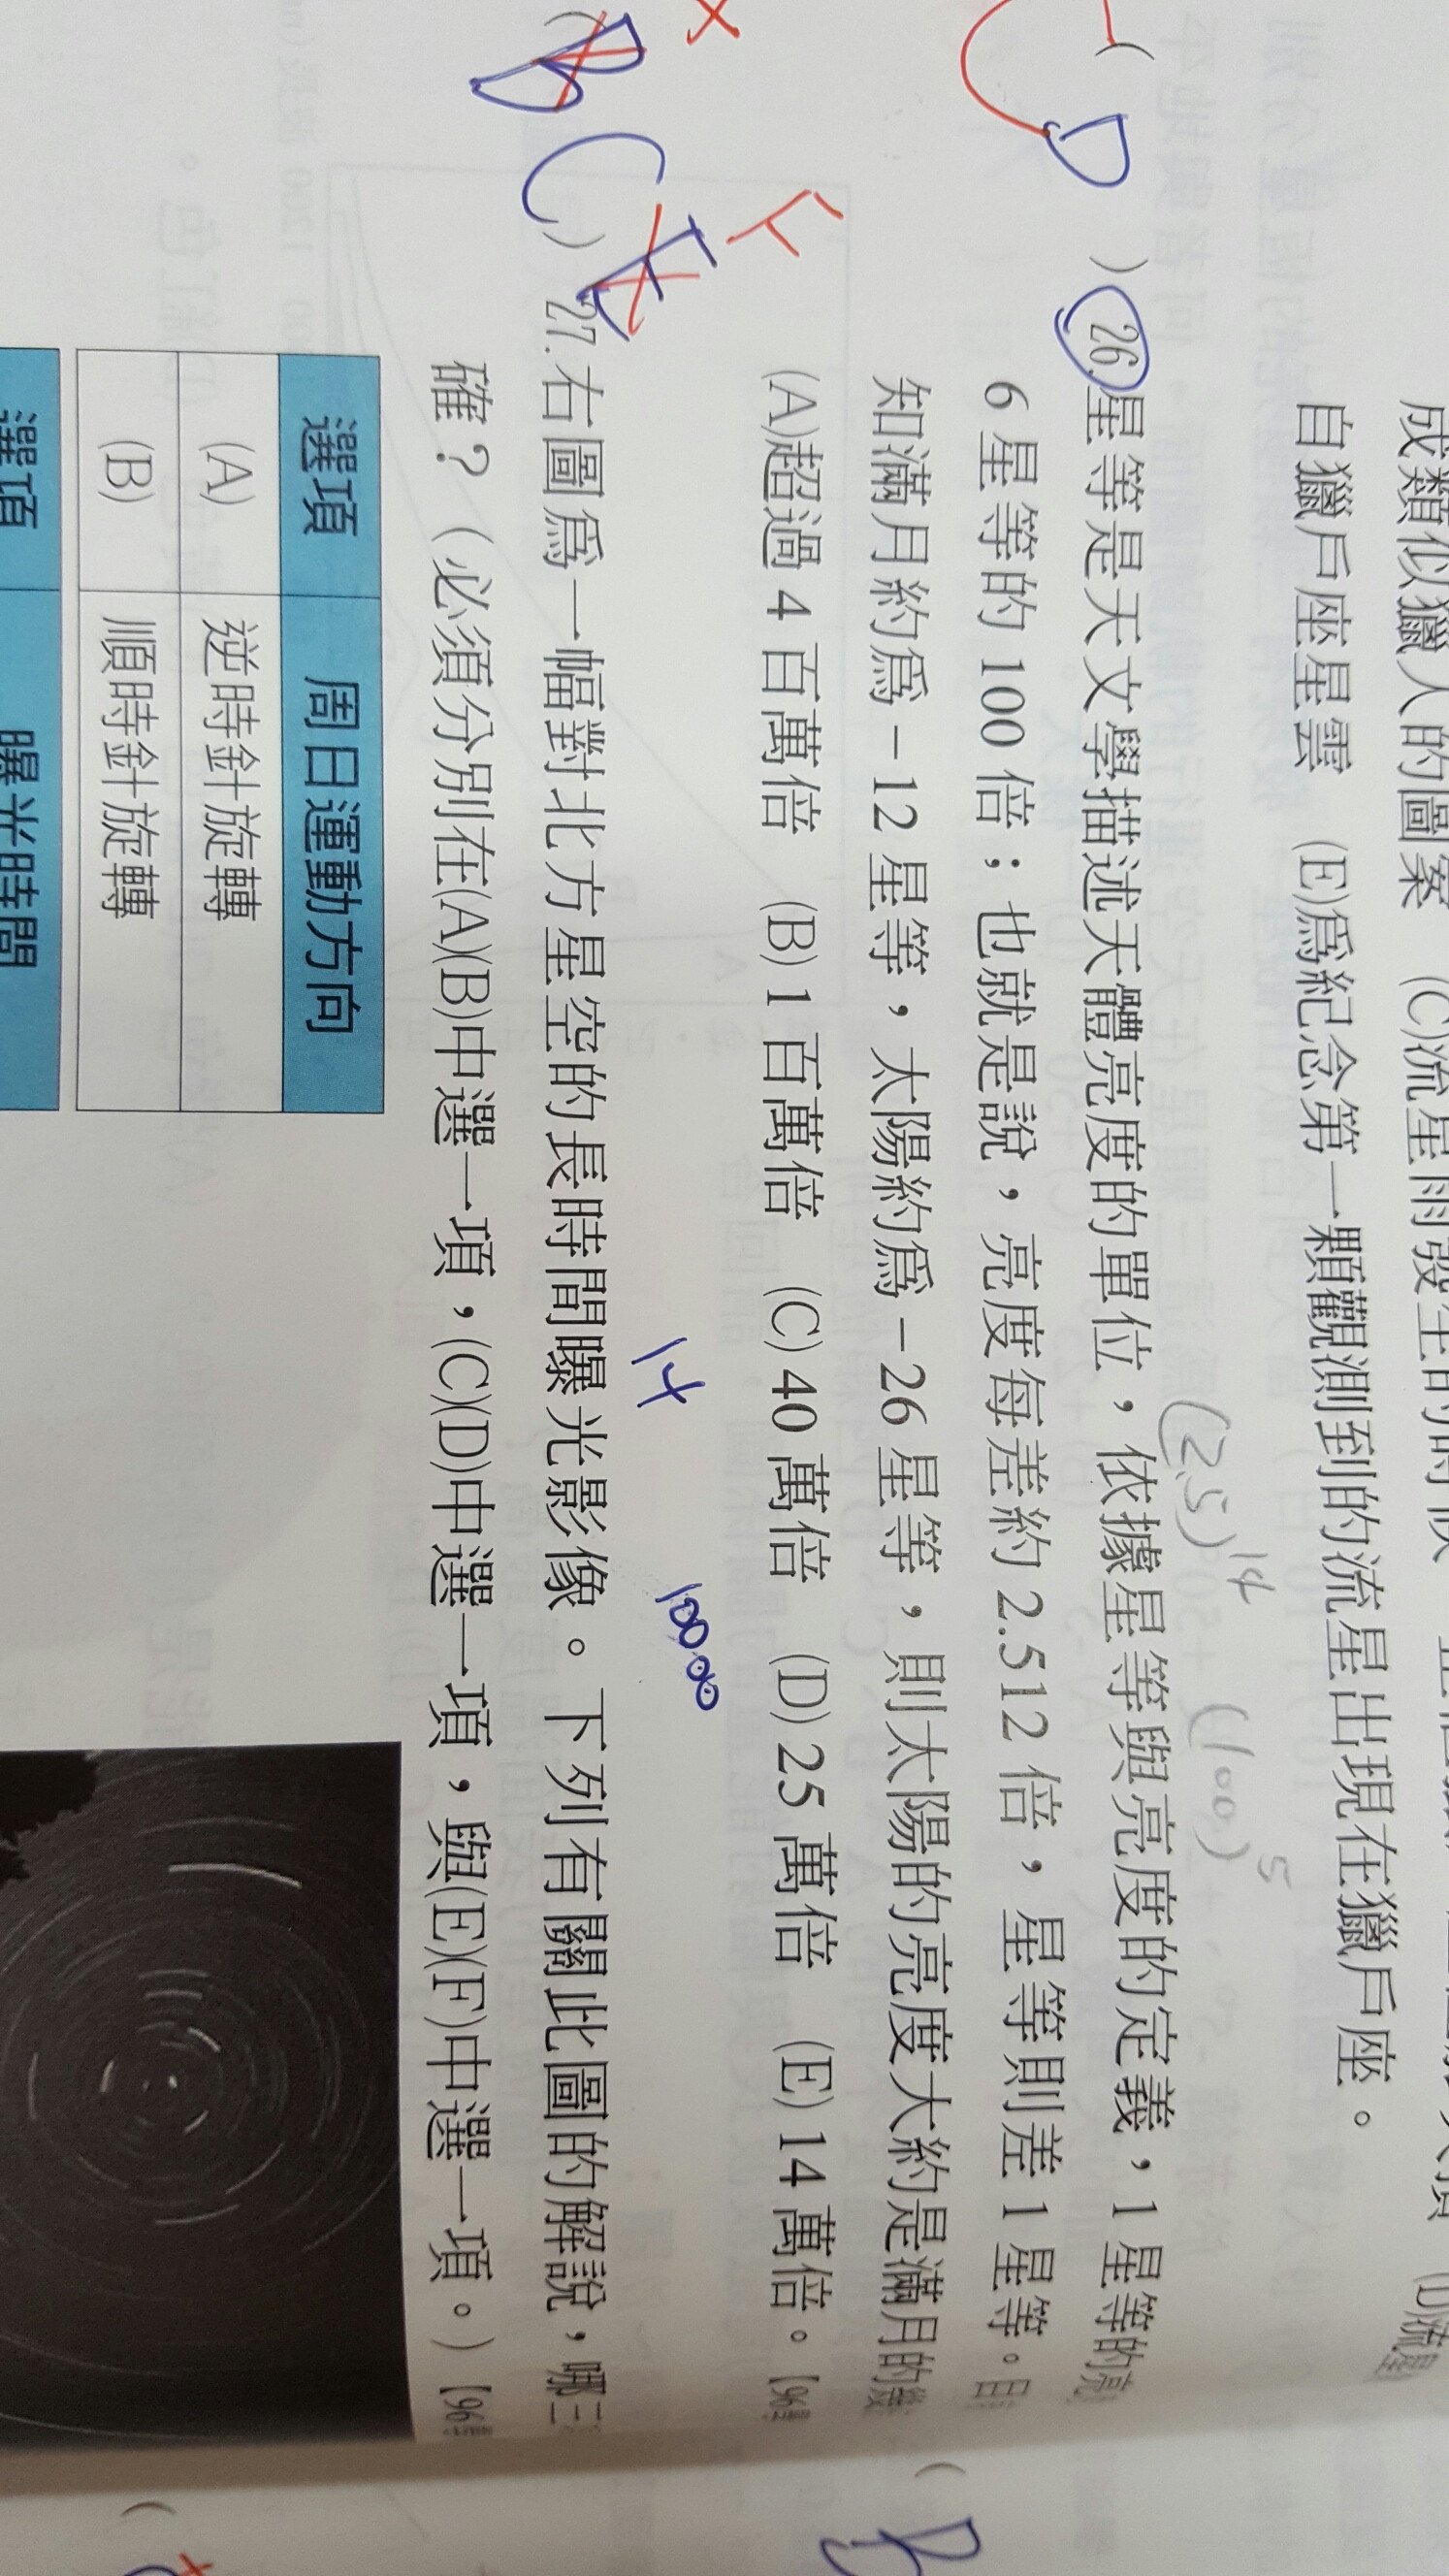 成類似獵人的圖案 (C)流星雨發生的時候
自獵戶座星雲 (E)爲紀念第一顆觀測到的流星出現在獵戶座。
(2.5)14 (100)5
( D )26.星等是天文學描述天體亮度的單位，依據星等與亮度的定義，1星等的亮
6星等的100倍；也就是說，亮度每差約2.512倍，星等則差1星等。
知滿月約爲－12星等，太陽約爲－26星等，則太陽的亮度大約是滿月的幾
(A)超過4百萬倍 (B)1百萬倍 (C)40萬倍 (D)25萬倍 (E)14萬倍。【96
14 10000
(B C )27.右圖爲一幅對北方星空的長時間曝光影像。下列有關此圖的解說，哪三
確？（必須分別在(A)(B)中選一項，(C)(D)中選一項，與(E)(F)中選一項。）【96
選項 周日運動方向
(A) 逆時針旋轉
(B) 順時針旋轉
選項 曝光時間